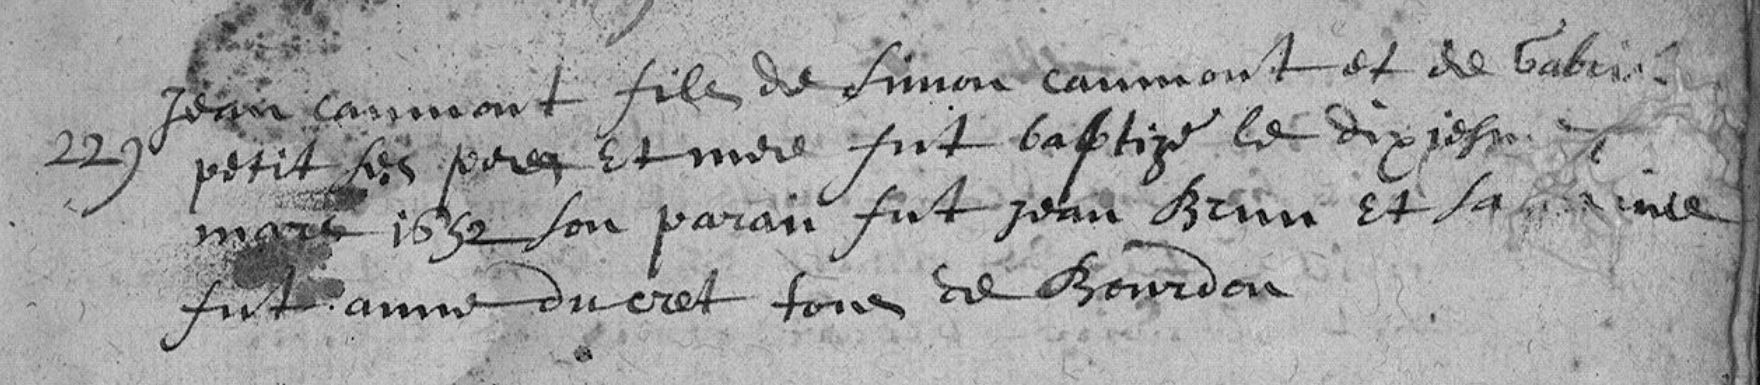 Jean caumont fils de Simon caumont et de Gabri
229 petit ses peres Et mere fut baptizé le dixiesme
mars 1652 son parain fut jean Brun Et sa
fut anne ducret tous de Bourdon